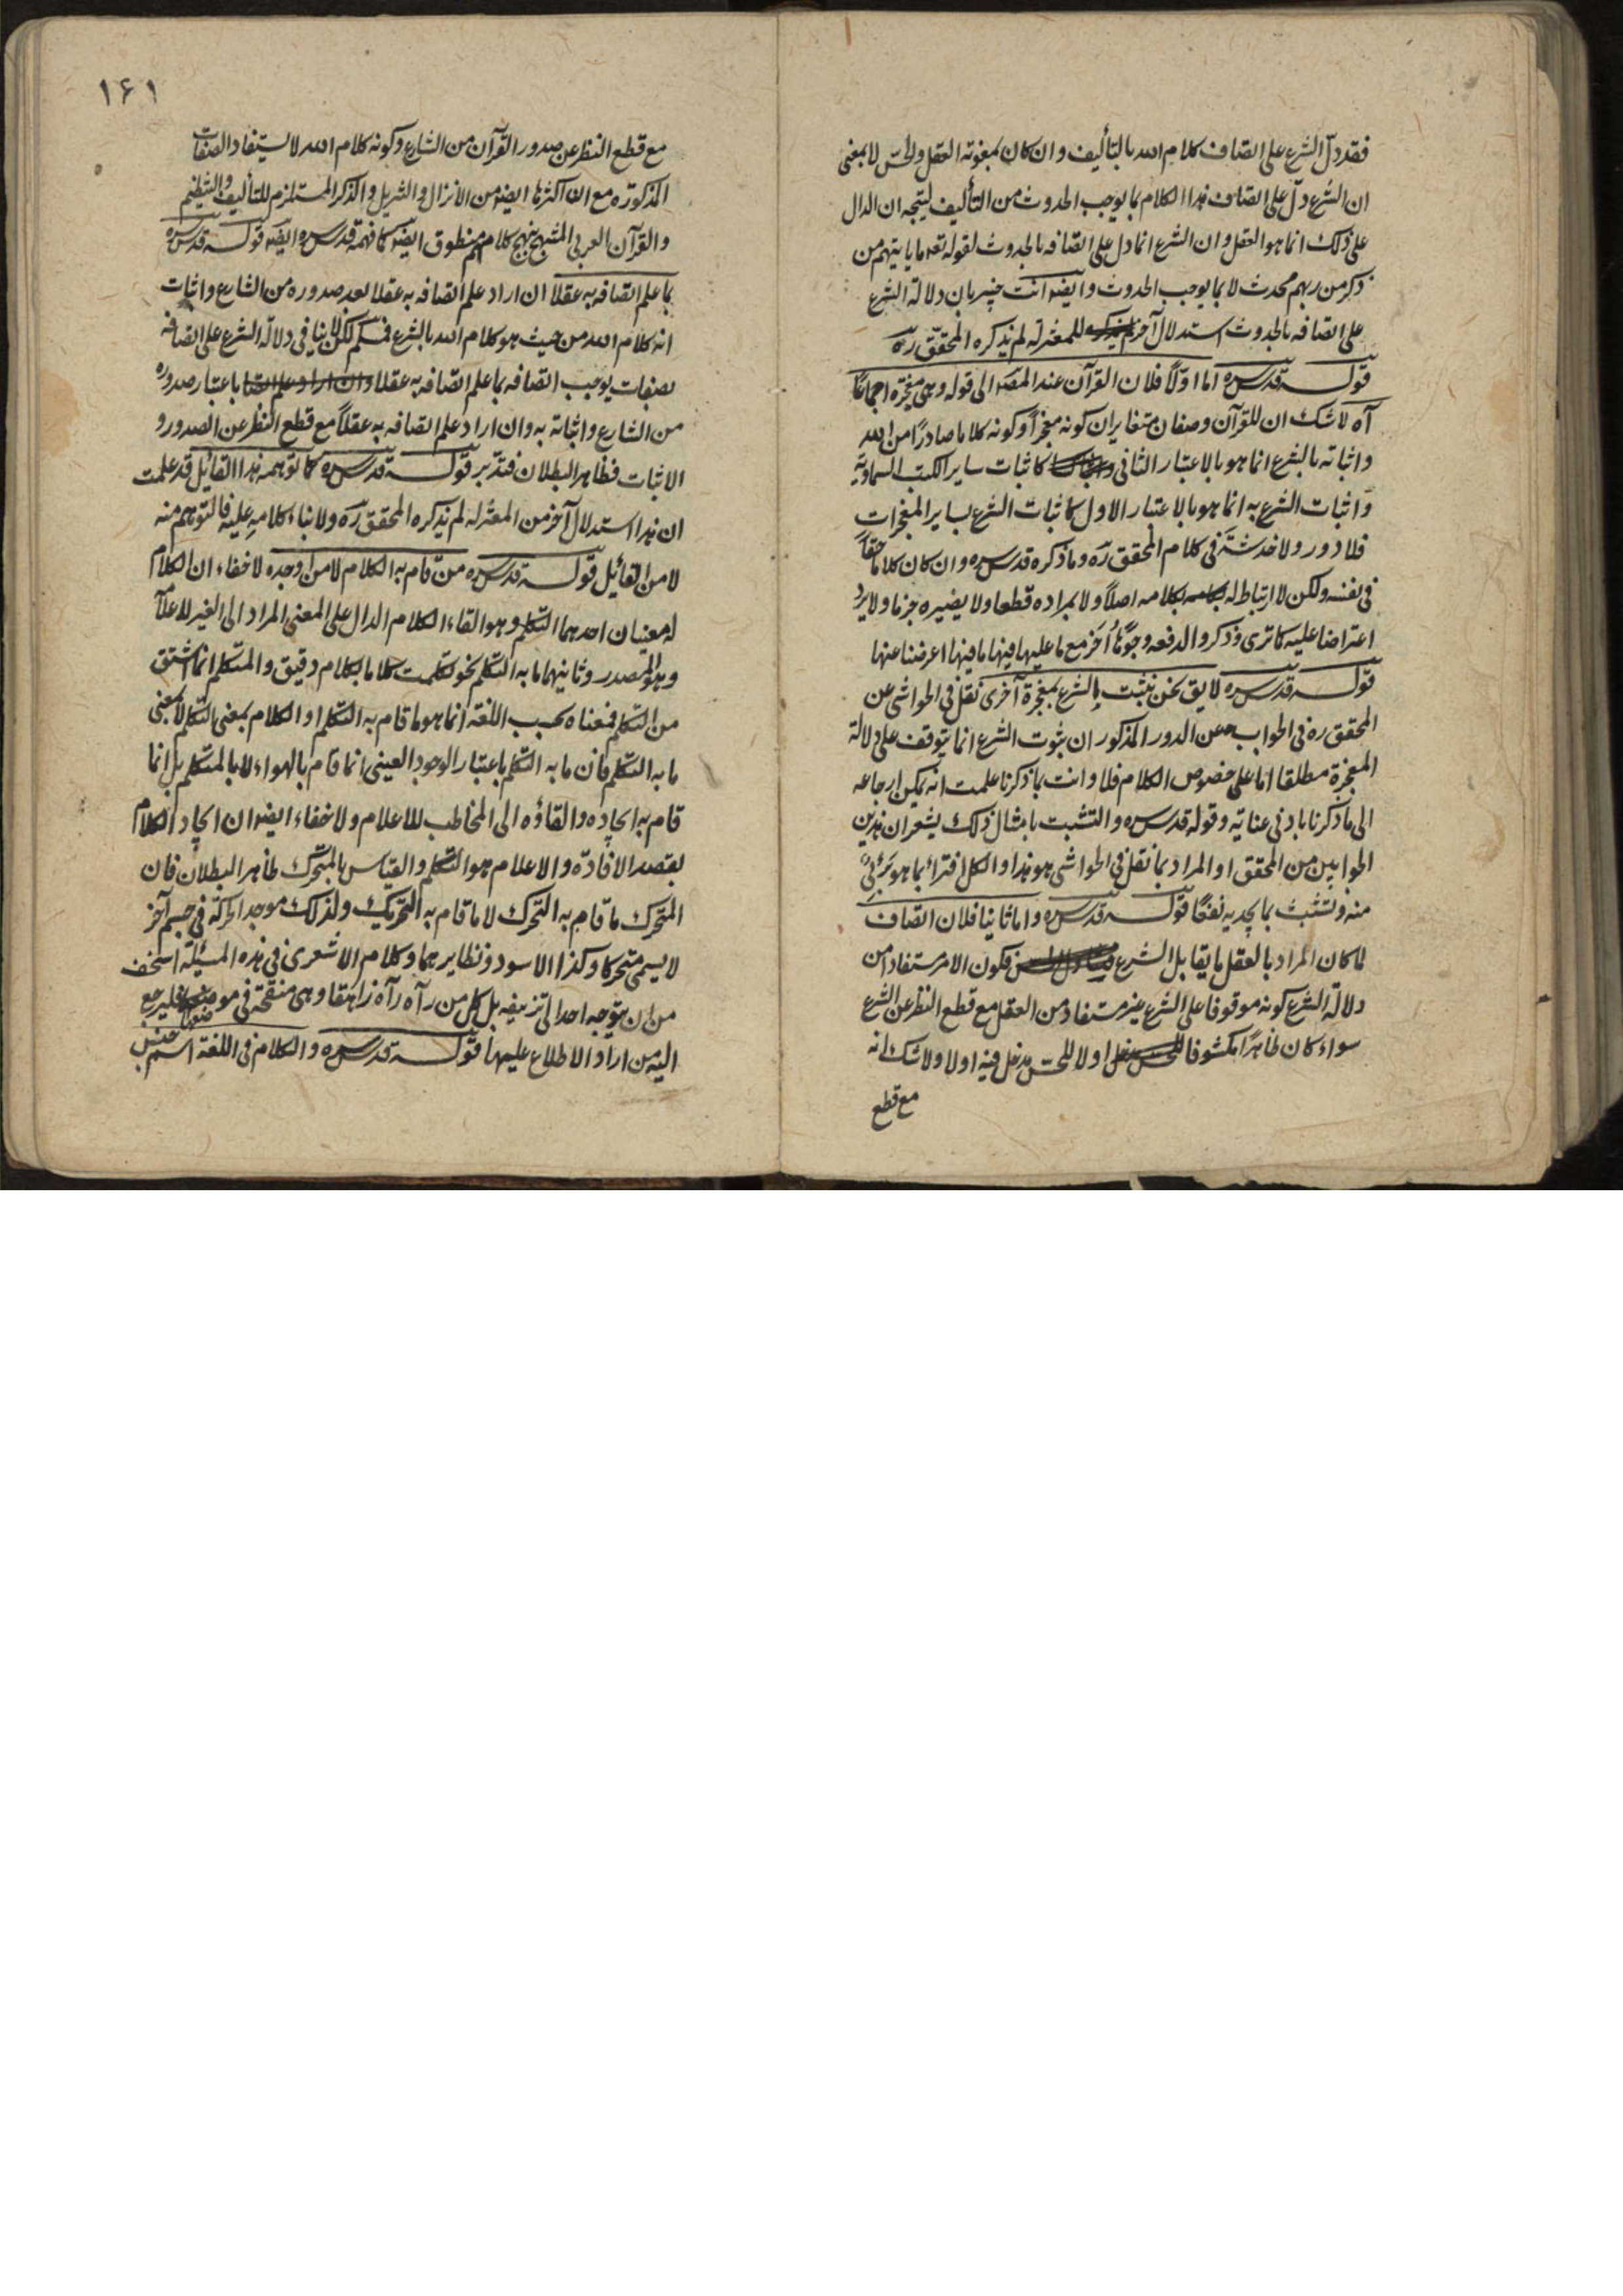 فقد دلّ الشرع على اتصاف كلام الله بالتأليف وان كان بمعونة العقل والحسّ لا بمعنى
ان الشرع دلّ على اتصاف هذا الكلام بما يوجب الحدوث من التأليف ليتجه ان الدال
على ذلك انما هو العقل وان الشرع انما دل على اتصافه بالحدوث لقوله تعه ما ياتيهم من
ذكر من ربهم محدث لا بما يوجب الحدوث وايضا انت خبير بان دلالة الشرع
على اتصافه بالحدوث استدلال آخر للمعتزلة لم يذكره المحقق ره
قوله قدس سره اما اوّلاً فلان القرآن عند المص الى قوله وهى معجزة اجماعًا
آه لا شك ان للقرآن وصفان متغايران كونه معجزاً وكونه كلاما صادرًا من الله
واثباته بالشرع انما هو بالاعتبار الثانى كاثبات ساير الكتب السماوية
واثبات الشرع به انما هو بالاعتبار الاول كاثبات الشرع بساير المعجزات
فلا دور ولا خدشة فى كلام المحقق ره وما ذكره قدس سره وان كان كلاما حقًا
فى نفسه ولكن لا ارتباط له بكلامه اصلاً ولا بمراده قطعا ولا يضيره جزما ولا يرد
اعتراضا عليه كما ترى وذكروا لدفعه وجوهًا أخر مع ما عليها فيها ما فيها اعرضنا عنها
قوله قدس سره لا يق نحن نثبت الشرع بمعجزة آخرى نقل فى الحواشى عن
المحقق ره فى الجواب عن الدور المذكور ان ثبوت الشرع انما يتوقف على دلالة
المعجزة مطلقا اما على خصوص الكلام فلا وانت بما ذكرنا علمت انه يمكن ارجاعه
الى ما ذكرنا بادنى عناية وقوله قدس سره والتشبث بامثال ذلك يشعر ان هذين
الجوابين من المحقق او المراد بما نقل فى الحواشى هو هذا والكل افتراء بما هو برئ
منه وتشبث بما يجديه نفعًا قوله قدس سره واما ثانيا فلان اتصاف
لما كان المراد بالعقل ما يقابل الشرع فكون الامر مستفادا من
دلالة الشرع كونه موقوفا على الشرع غير مستفاد من العقل مع قطع النظر عن الشرع
سواء كان ظاهرًا مكشوفا للحسّ اولا للحسّ مدخل فيه اولا ولا شك انه
مع قطع
١٤١
مع قطع النظر عن صدور القرآن من الشارع وكونه كلام الله لا يستفاد الصفات
المذكورة مع ان اكثرها ايضا من الانزال والتنزيل والذكر المستلزم للتأليف والتنظيم
والقرآن العربى المنتهج بنهج كلامهم منطوق ايضا كما فهمه قدس سره ايضا قوله قدس سره
بما علم اتصافه به عقلا ان اراد علم اتصافه به عقلا بعد صدوره من الشارع واثبات
انه كلام الله من حيث هو كلام الله بالشرع فمسلّم لكن لا ينافى دلالة الشرع على اتصافه
بصفات يوجب اتصافه بما علم اتصافه به عقلا باعتبار صدوره
من الشارع واثباته به وان اراد علم اتصافه به عقلاً مع قطع النظر عن الصدور و
الاثبات فظاهر البطلان فتدبر قوله قدس سره كما توهمه هذا القائل قد علمت
ان هذا استدلال آخر من المعتزلة لم يذكره المحقق ره ولا بناء كلامه عليه فالتوهم منه
لا من القائل قوله قدس سره من قام به الكلام لا من اوجده لا خفاء ان الكلام
له معنيان احدهما التكلم وهو القاء الكلام الدال على المعنى المراد الى الغير للاعلام
وهو المصدر وثانيهما ما به التكلم نحو تكلمت كلاما بكلام دقيق والمتكلم انما اشتق
من التكلم فمعناه بحسب اللغة انما هو ما قام به التكلم او الكلام بمعنى التكلم لا بمعنى
ما به التكلم فان ما به التكلم باعتبار الوجود العينى انما قام بالهواء لا بالمتكلم بل انما
قام به ايجاده والقاؤه الى المخاطب للاعلام ولا خفاء ايضا ان ايجاد الكلام
لقصد الافادة والاعلام هو التكلم والقياس بالمتحرك ظاهر البطلان فان
المتحرك ما قام به التحرك لا ما قام به التحريك ولذلك موجد الحركة فى جسم آخر
لا يسمى متحركا وكذا الاسود ونظايرهما وكلام الاشعرى فى هذه المسئلة اسخف
من ان يتوجه احد الى تزييفه بل كل من رآه رآه زاهقا وهى منقحة فى موضعها فليرجع
اليه من اراد الاطلاع عليها قوله قدس سره والكلام فى اللغة اسم جنس